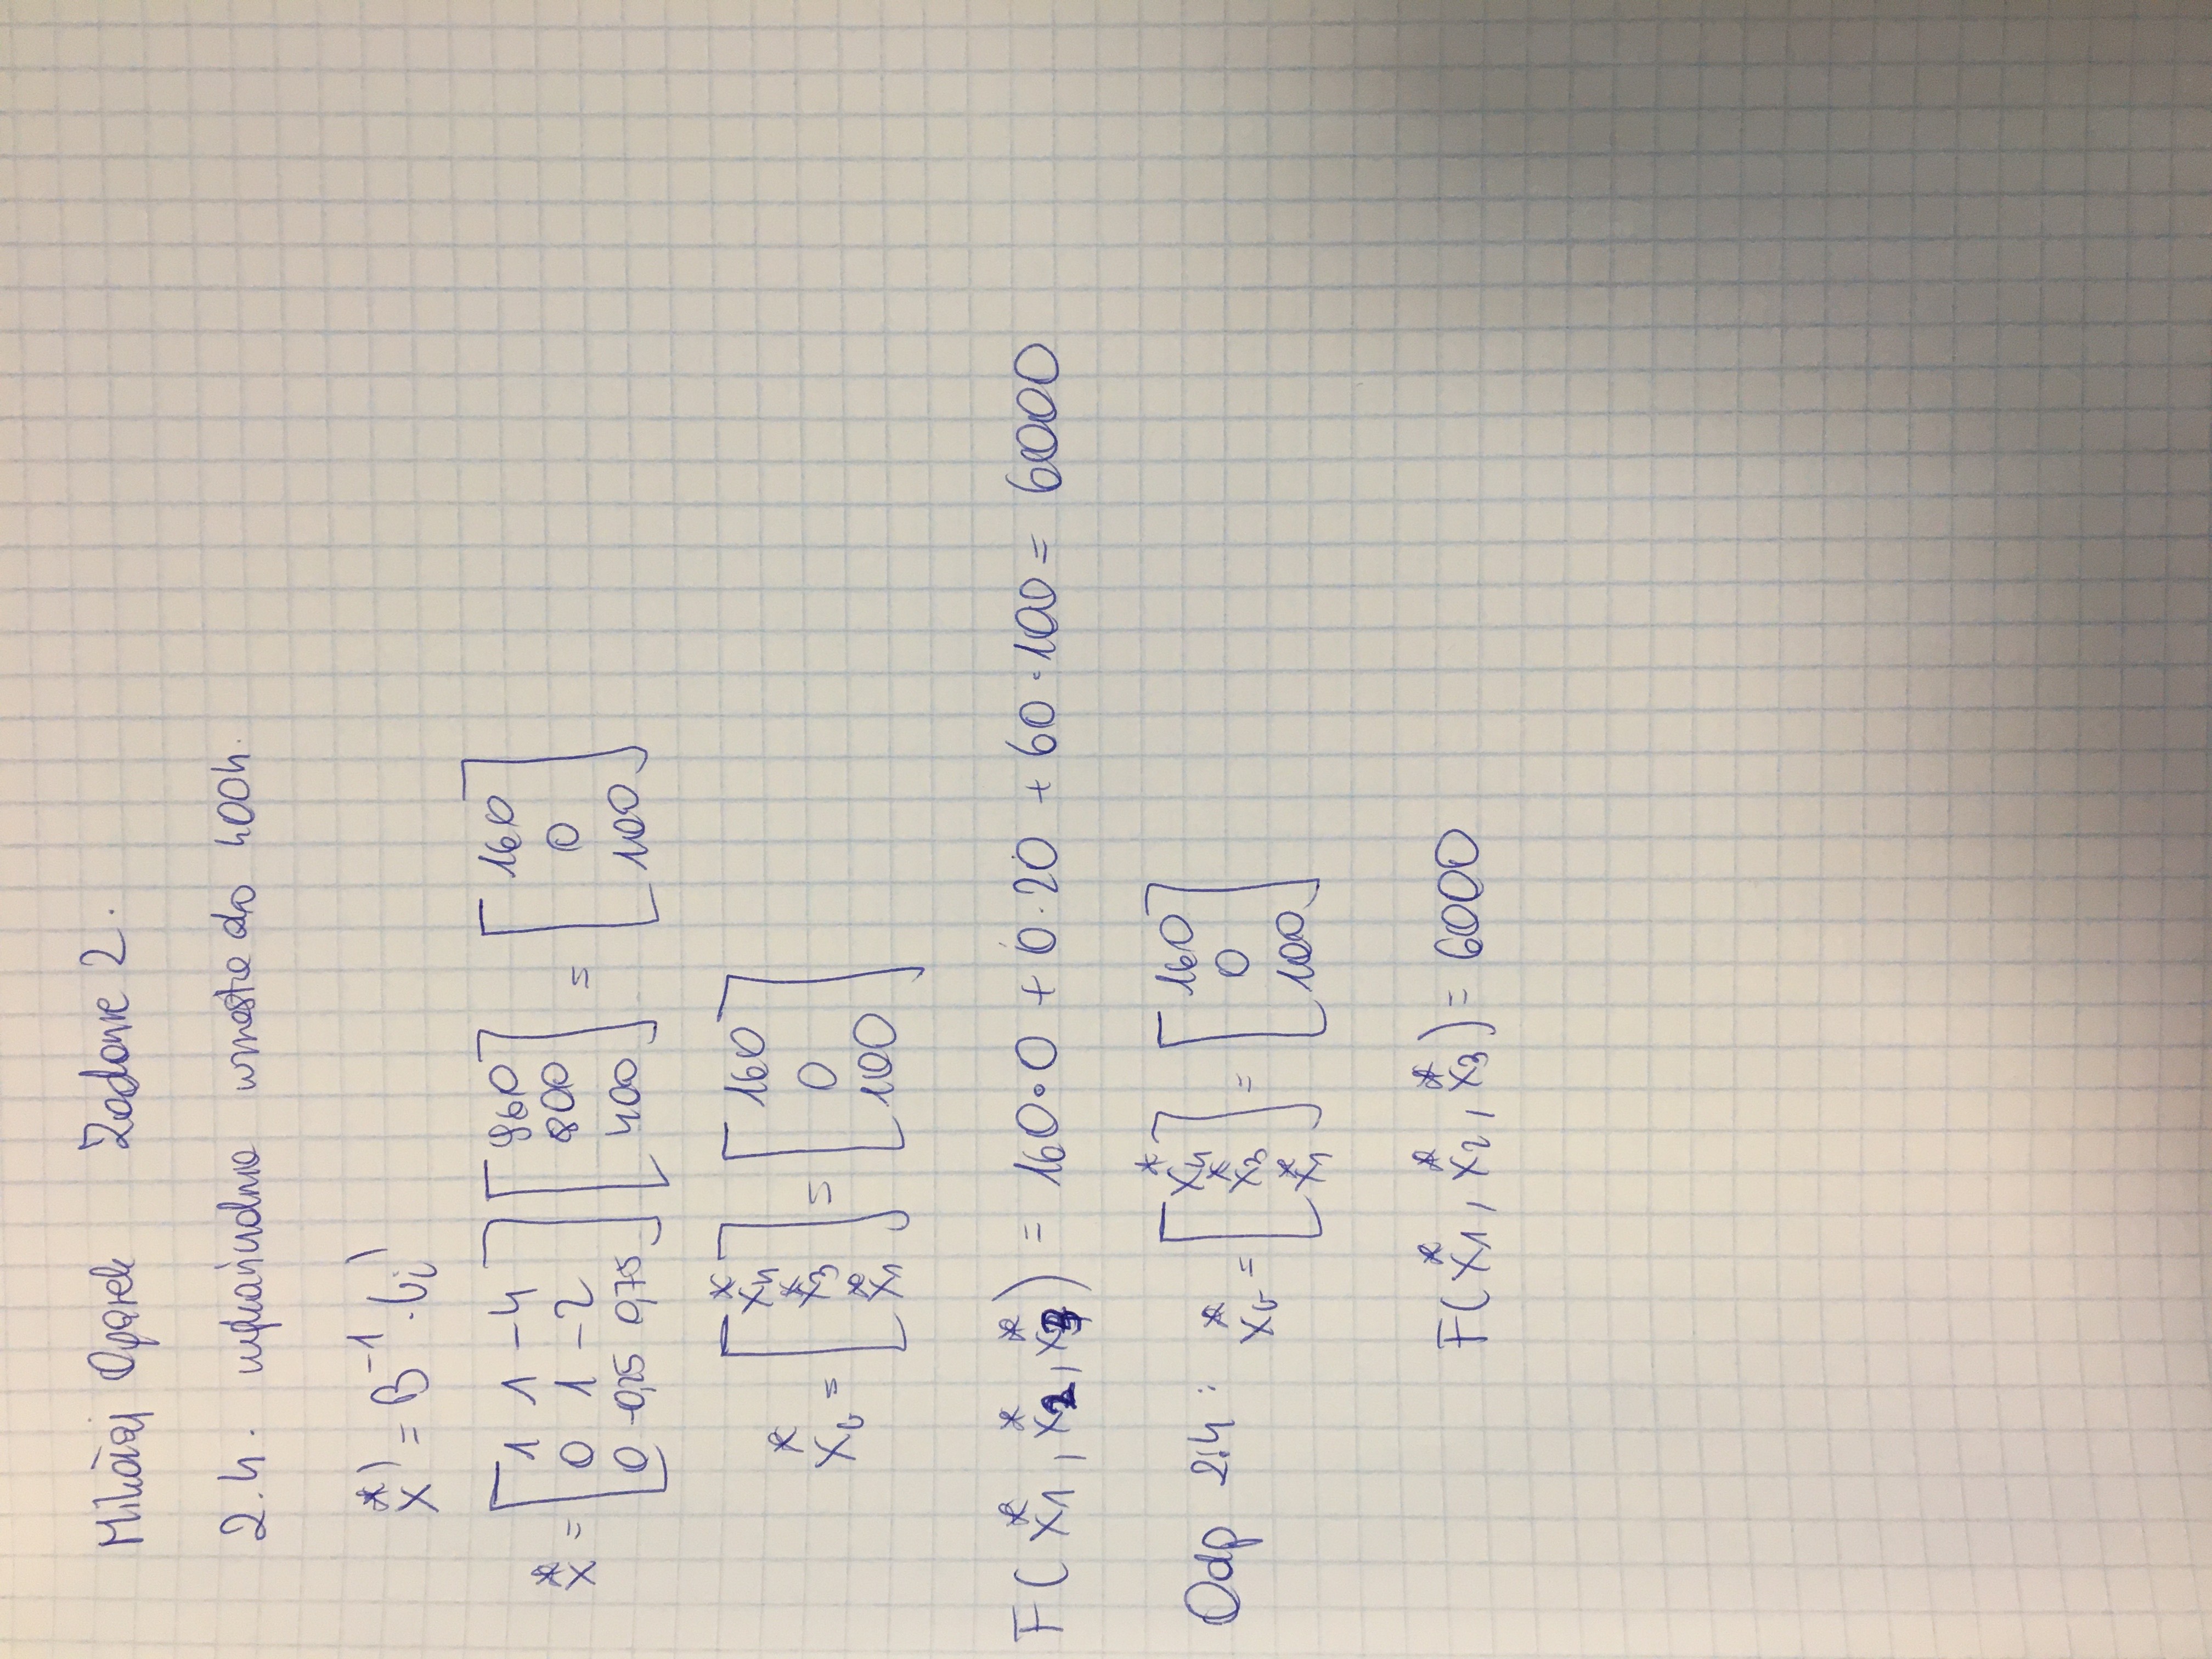 Mikołaj Ogarek Zadanie 2.
2.4. wykańczalnia wzrasta do 400h.
x*' = B⁻¹ · bi'
x* = [1 1 -4; 0 1 -2; 0 -0,25 0,75] [960; 800; 400] = [160; 0; 100]
x*b = [x*4; x*3; x*1] = [160; 0; 100]
F(x*1, x*2, x*3) = 160·0 + 0·20 + 60·100 = 6000
Odp 2.4: x*b = [x*4; x*3; x*1] = [160; 0; 100]
F(x*1, x*2, x*3) = 6000